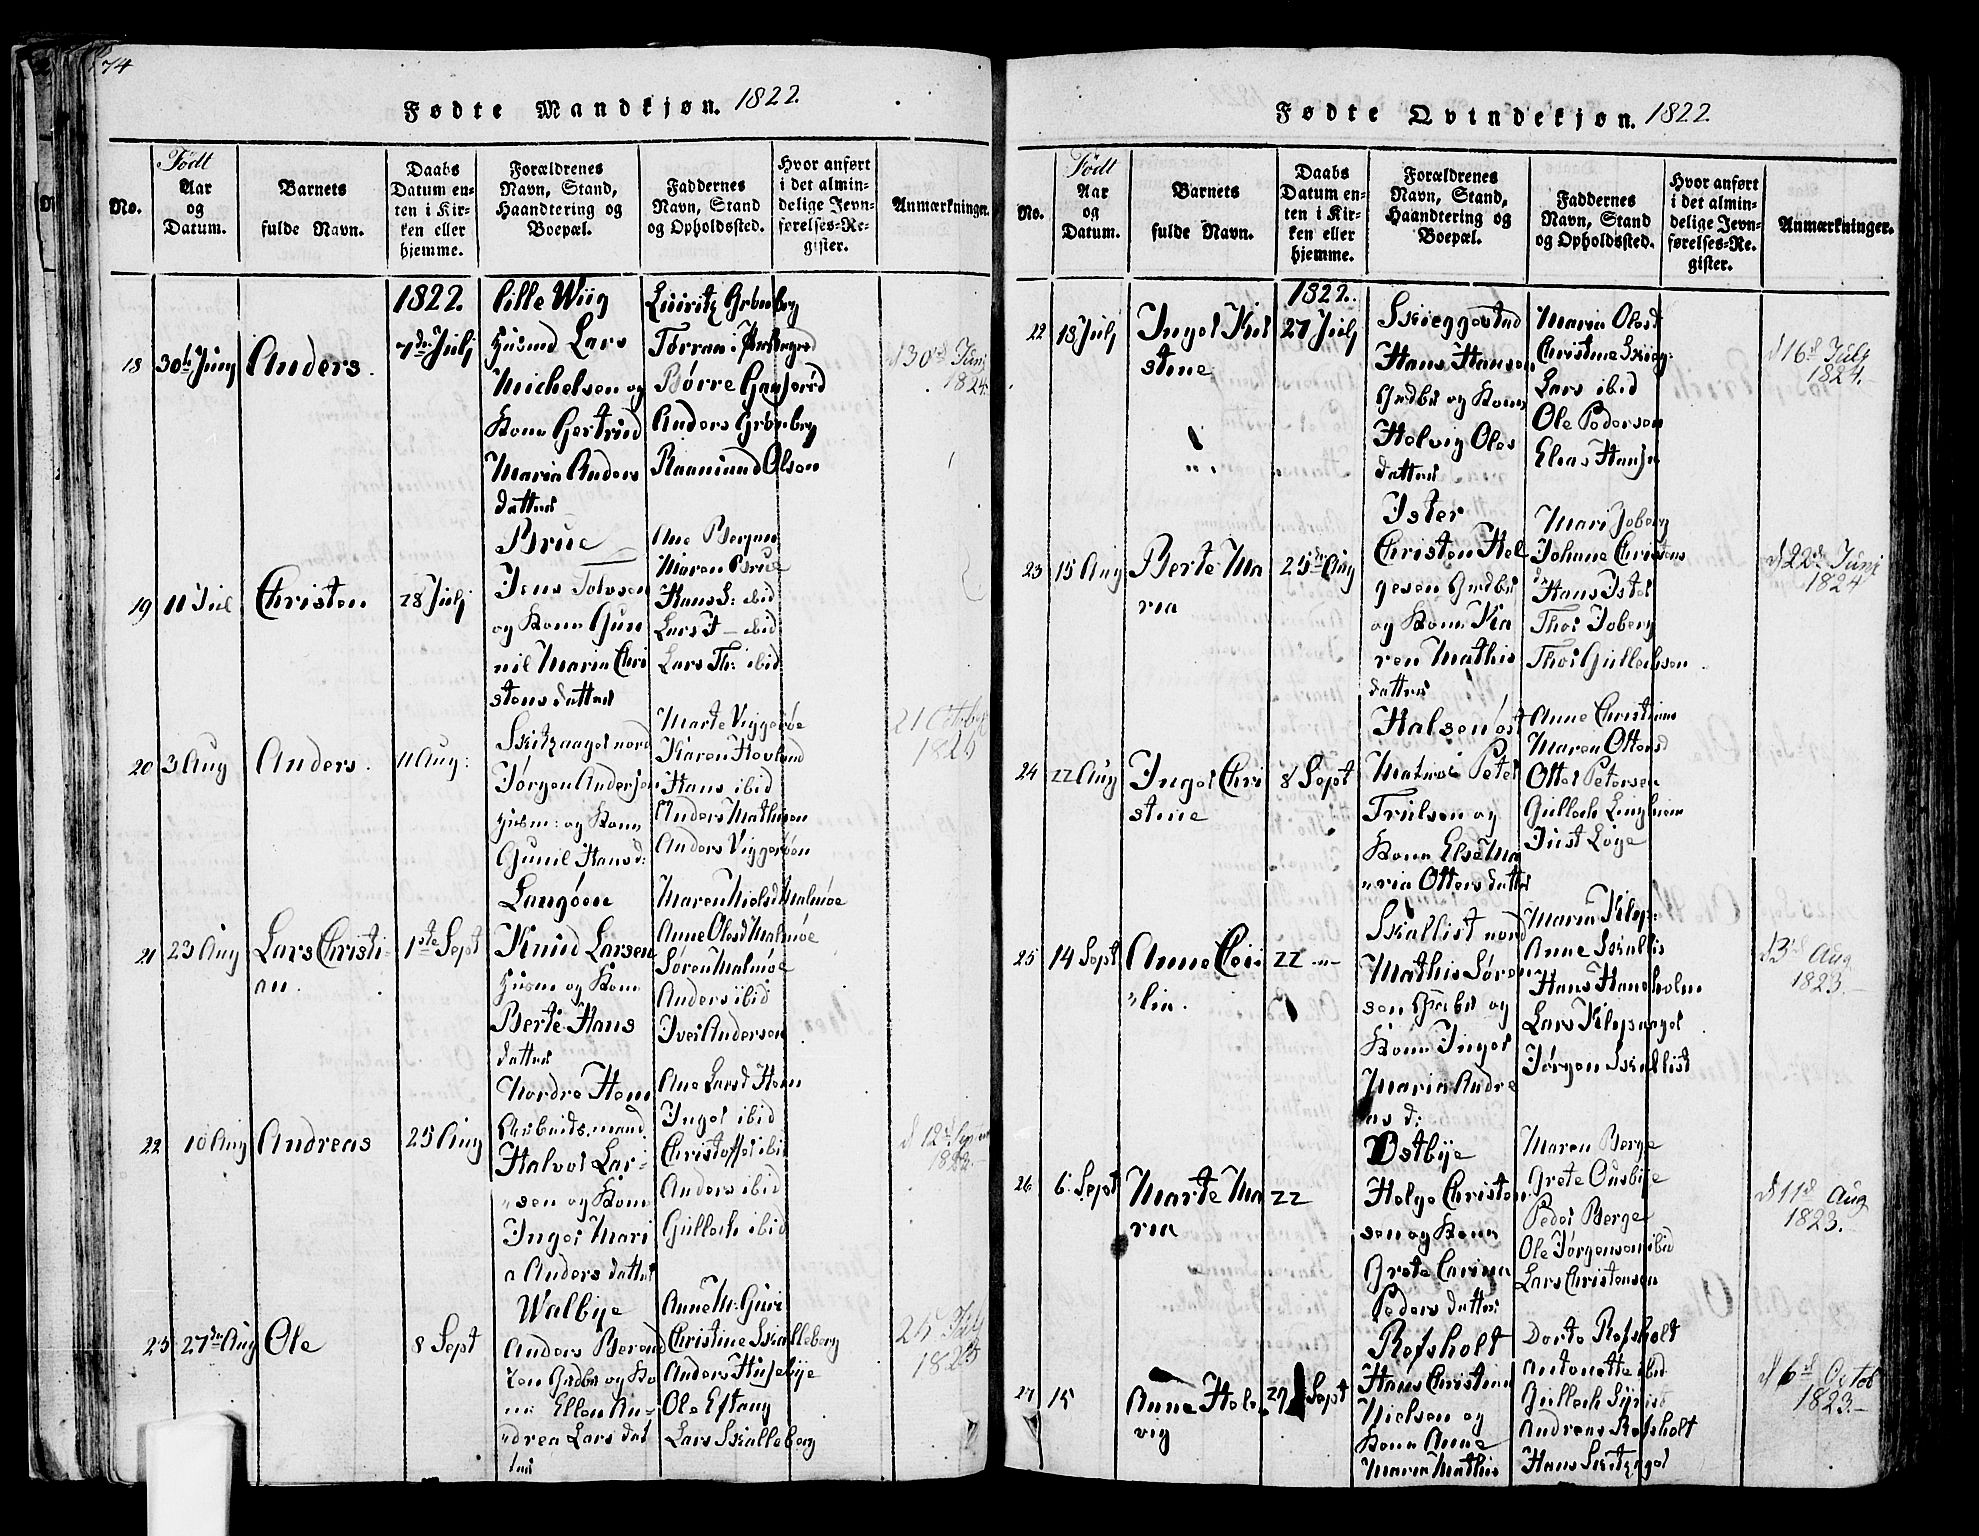 74
Fødte Mandkjøn. 1822.
No.
Født
Aar
og
Datum.
Barnets
fulde Navn.
Daabs
Datum en-
ten i Kir-
ken eller
hjemme.
Forældrenes
Navn, Stand,
Haandtering og
Boepæl.
Faddernes
Navn, Stand
og Opholdssted.
Hvor anført
i det almin-
delige Jevn-
førelses-Re-
gister.
Anmærkninger.
18
30te Juny
Anders.
1822.
7de Julj
lille Wiig
Husmd Lars
Michelsen og
Kone Gertrud
Maria Anders
datter
Grönberg
Børre
Anders Grönberg
Raamund Olsen
d 30d Juni
1824.
19
11 Jul
Christen
28 Julj
Brue
Jens Tolvsen
og Kone Gun
nil Maria Chri
stens datter
Ane Bergan
Maren Brue
Hans L: ibid
Lars J— ibid
Lars Th: ibid
20
3 Aug
Anders.
11 Aug:
Skitzaager nord
Jørgen Andersen
Husm: og Kone
Gunil Hansd:
Marte Viggerøe
Karen Hovland
Hans ibid
Anders Mathisen
Anders Viggerøen
21 October
1825
21
23 Aug
Lars Christi-
an.
1ste Sept
Langöen
Knud Larsen
Husm og Kone
Berte Hans
datter
Maren Nielsd Malmøe
Anne Olesd Malmøe
Søren Malmøe
Anders ibid
Iver Andersen
22
10 Aug
Andreas
25 Aug
Nordre Hem
Arbeids.mand
Halvor Lar-
sen og Kone
Inger Mari
a Anders datter
Ane Larsd Hem
Inger ibid
Christoffer ibi
Anders ibid
Gulloch ibid
23
27de Aug
Ole
8 Sept
Walbye
Anders Berend
zen Grdbr og Ko
ne Ellen An-
drea Lars dat
ter
Anne M: Guri
Christine Skalleberg
Anders Husebye
Ole Eftang
Lars Skalleberg
25 July
1825
Fødte Qvindekjøn. 1822.
No.
Født
Aar
og
Datum.
Barnets
fulde Navn.
Daabs
Datum en-
ten i Kir-
ken eller
hjemme.
Forældrenes
Navn, Stand,
Haandtering og
Boepæl.
Faddernes
Navn, Stand
og Opholdssted.
Hvor anført
i det almin-
delige Jevn-
førelses-Re-
gister.
Anmærkninger.
22
18 Julj
Inger Kir
stine
1822.
27 Julj
Skieggestad
Hans Hansen
Grdbr og Kone
Helvig Oles
datter
Maria Olesd
Christine Skieg-
Lars ibid
Ole Pedersen
Elias Hansen
d 16d July
1824.
23
15 Aug
Berte Ma
ria
25de Aug
Ister
Christen Hel
gesen Grdbr
og Kone Ka
ren Mathis
datter
Mari Joberg
Johanne Christens
dr
Hans Ister
Thor Joberg
Thor Gullichsen
d 22d Juni
1824
24
22 Aug
Inger Chri
stine
8 Sept
Halsen öst
Matros Peter
Trulsen og
Kone Else Ma
ria Otters datter
Anne Christians
Maren Ottersd
Otter Petersen
Gulloch Lingheim
Just Løge
25
14 Sept
Anne
lia.
22 —
Skallist nord
Mathis Sören
sen Grdbr og
Kone Inger
Maria Andre
as d:
Maren Klep:
Anne Skallis
Hans Hansholm
Lars Klepaager
Jørgen Skallist
d 13d Aug
1823.
26
6. Sept
Marte Ma
ria
22
Østbye
Helge Christen
sen og Kone
Grete Carina
Peders datter
Maren Berge
Grete Ousbye
Peder Berge
Ole Jørgensen ibid
Lars Christensen
d 11d Aug
1823.
27
15
Anne Hel-
vig
29 Sept
Rofsholt
Hans Christian
Nielsen og
Kone Anne
Maria Mathis
Dorte Rofsholt
Antonette ibid
Gulloch
Andreas Rofsholt
Hans Skitzager
d 6d Octob
1823.—